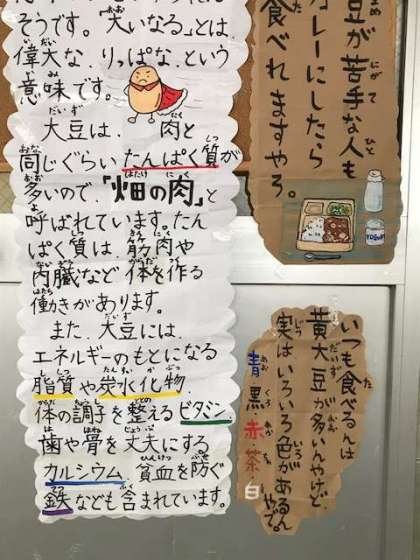 そうです。「大いなる」とは、
偉大な、りっぱな、という
意味です。
大豆は、肉と
同じぐらいたんぱく質が
多いので、「畑の肉」と
呼ばれています。たん
ぱく質は、筋肉や
内臓など体を作る
働きがあります。
また、大豆には、
エネルギーのもとになる
脂質や炭水化物、
体の調子を整えるビタミン、
歯や骨を丈夫にする
カルシウム、貧血を防ぐ
鉄なども含まれています。
豆が苦手な人も
カレーにしたら
食べれますやろ。
YOGURT
いつも食べるんは
黄大豆が多いんやけど、
実はいろいろ色があるん
やで。
青黒赤茶白